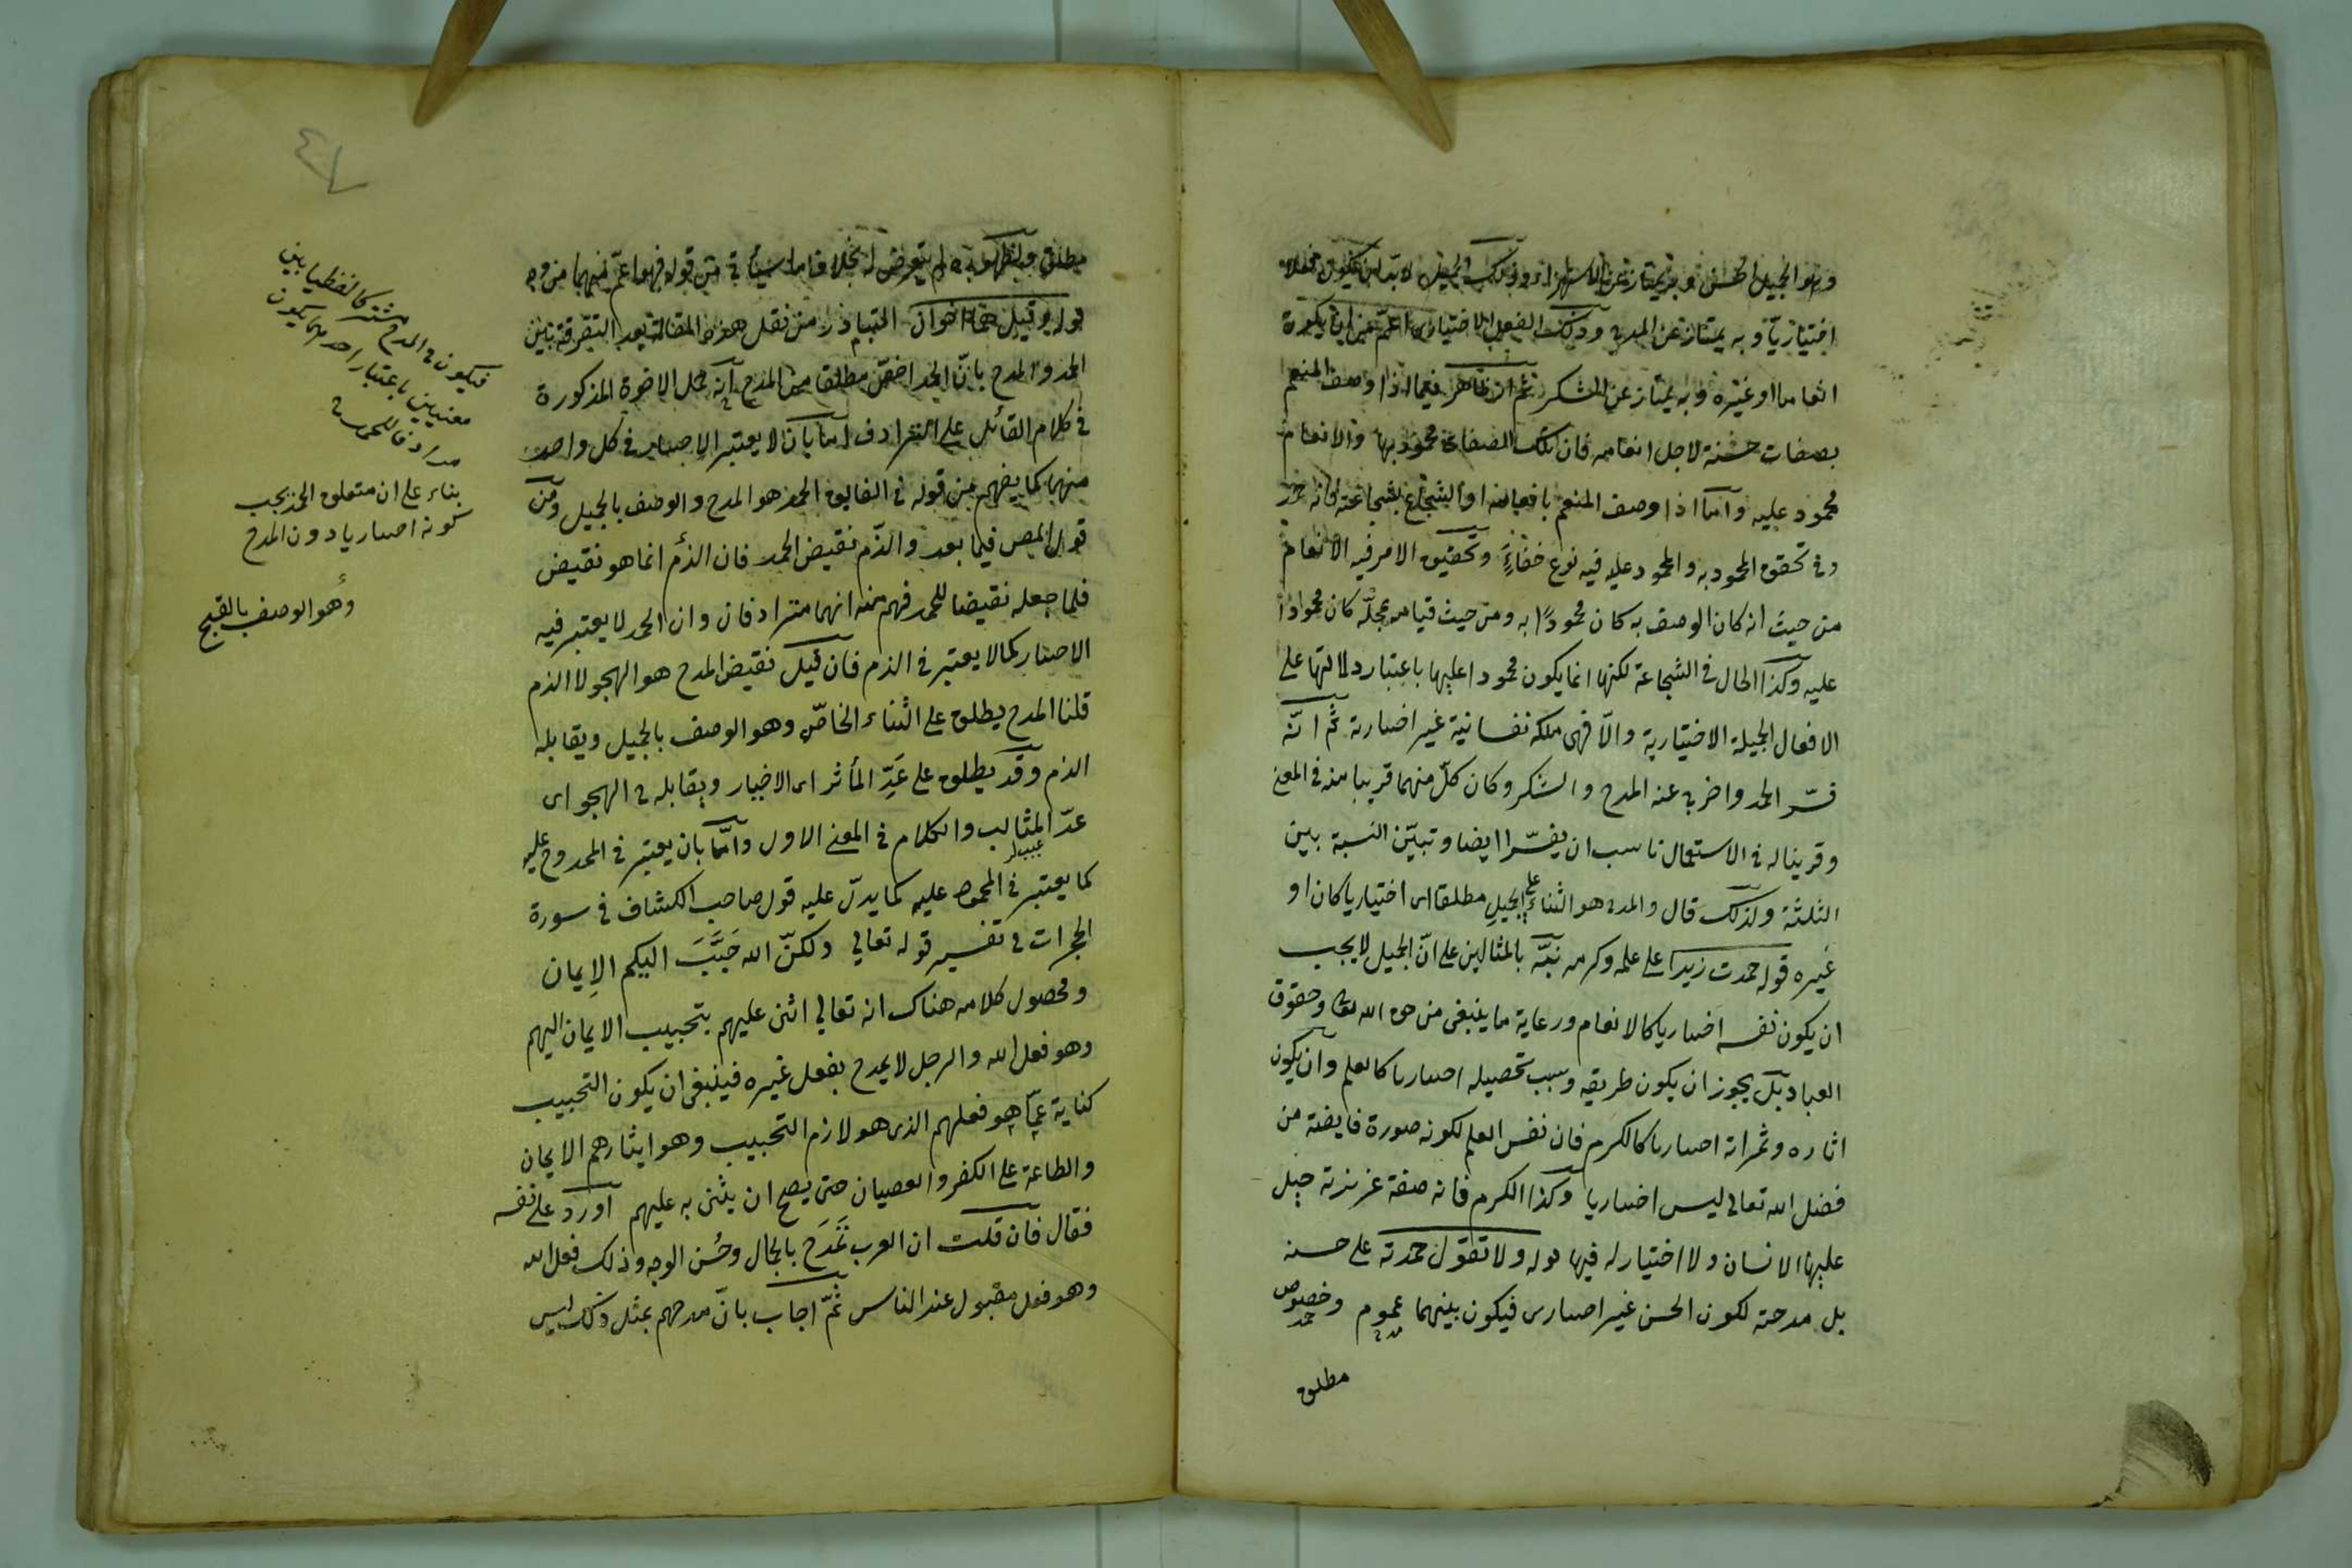 وهو الجميل الحسن وبه يمتاز عن الاستهزاء وذلك الجميل لا بد ان يكون فعلا
اختياريّا وبه يمتاز عن المدح وذلك الفعل الاختيارى اعمّ من ان يكون
انعاما او غيره وبه يمتاز عن الشكر ثم ان ظاهر فيما اذا وصف المنعم
بصفات حسنة لاجل انعامه فان تلك الصفات محمود بها والانعام
محمود عليه وآما اذا وصف المنعم بافعاله او الشجاع بشجاعته فانه
فى تحقق المحمود به والمحمود عليه فيه نوع خفاءٍ وتحقيق الامر فيه الانعام
من حيث انه كان الوصف به كان محمودًا به ومن حيث قيامه بمحلّه كان محمودا
عليه وكذا الحال فى الشجاعة لكنها انما يكون محمودا عليها باعتبار دلالتها على
الافعال الجميلة الاختيارية والّا فهى ملكه نفسانية غير اختيارية ثمّ انّه
فسّر الحمد واخر عنه المدح والشكر وكان كلّ منهما قريبا منه فى المعنى
وقرينا له فى الاستعمال ناسب ان يفسّرا ايضا وتبيّن النسبة بين
الثلثة ولذلك قال والمدح هو الثناء على الجميل مطلقا اى اختياريا كان او
غيره قوله حمدت زيدا على علمه وكرمه نبّه بالمثالين على انّ الجميل لا يجب
ان يكون نفسه اختياريا كالانعام ورعاية ما ينبغى من حق الله تعالى وحقوق
العباد بل يجوز ان يكون طريقه وسبب تحصيله اختياريا كالعلم وان يكون
اثاره وثمراته اختياريا كالكرم فان نفس العلم لكونه صورة فايضة من
فضل الله تعالى ليس اختياريا وكذا الكرم فانه صفة غريزية جبل
عليها الانسان ولا اختيار له فيها قوله ولا تقول حمدته على حسنه
بل مدحته لكون الحسن غير اختيارى فيكون بينهما عموم وخصوص
مطلق
مطلق ولظهوره لم يتعرض له بخلاف ما سيأتى من قوله فهو اعمّ منهما من وجه
قوله وقيل هما اخوان المتبادر من نقل هذه المقالة بعد التفرقة بين
الحمد والمدح بانّ الحمد اخصّ مطلقا من المدح انه حمل الاخوة المذكورة
فى كلام القائل على الترادف اما بان لا يعتبر الاختيار فى كل واحد
منهما كما يفهم من قوله فى الفايق الحمد هو المدح والوصف بالجميل ومن
قول المص فيما بعد والذّم نقيض الحمد فان الذم انما هو نقيض
فلما جعله نقيضا للحمد فهم منه انهما مترادفان وان الحمد لا يعتبر فيه
الاختيار كما لا يعتبر فى الذم فان قيل نقيض المدح هو الهجو لا الذم
قلنا المدح يطلق على الثناء الخاصّ وهو الوصف بالجميل ويقابله
الذم وقد يطلق على عَدِّ المأثر اى الاخبار ويقابله الهجو اى
عدّ المثالب والكلام فى المعنى الاول وامّا بان يعتبر فى الممدوح عليه
كما يعتبر فى المحمود عليه كما يدلّ عليه قول صاحب الكشاف فى سورة
الحجرات فى تفسير قوله تعالى ولكنّ الله حَبَّبَ اليكم الإيمان
ومحصول كلامه هناك انه تعالى اثنى عليهم بتحبيب الايمان اليهم
وهو فعل الله والرجل لا يمدح بفعل غيره فينبغى ان يكون التحبيب
كناية عمّا هو فعلهم الذى هو لازم التحبيب وهو ايثارهم الايمان
والطاعة على الكفر والعصيان حتى يصح ان يثنى به عليهم اورد على نفسه
فقال فان قلت ان العرب تَمَدَح بالجمال وحُسن الوجه وذلك فعل الله
وهو فعل مقبول عند الناس ثمّ اجاب بانّ مدحهم بمثل ذلك ليس
فيكون المدح مشتركا لفظيا بين
معنيين باعتبار احدهما يكون
مرادفا للحمد
بناء على ان متعلق الحمد يجب
كونه اختياريا دون المدح
وهو الوصف بالقبيح